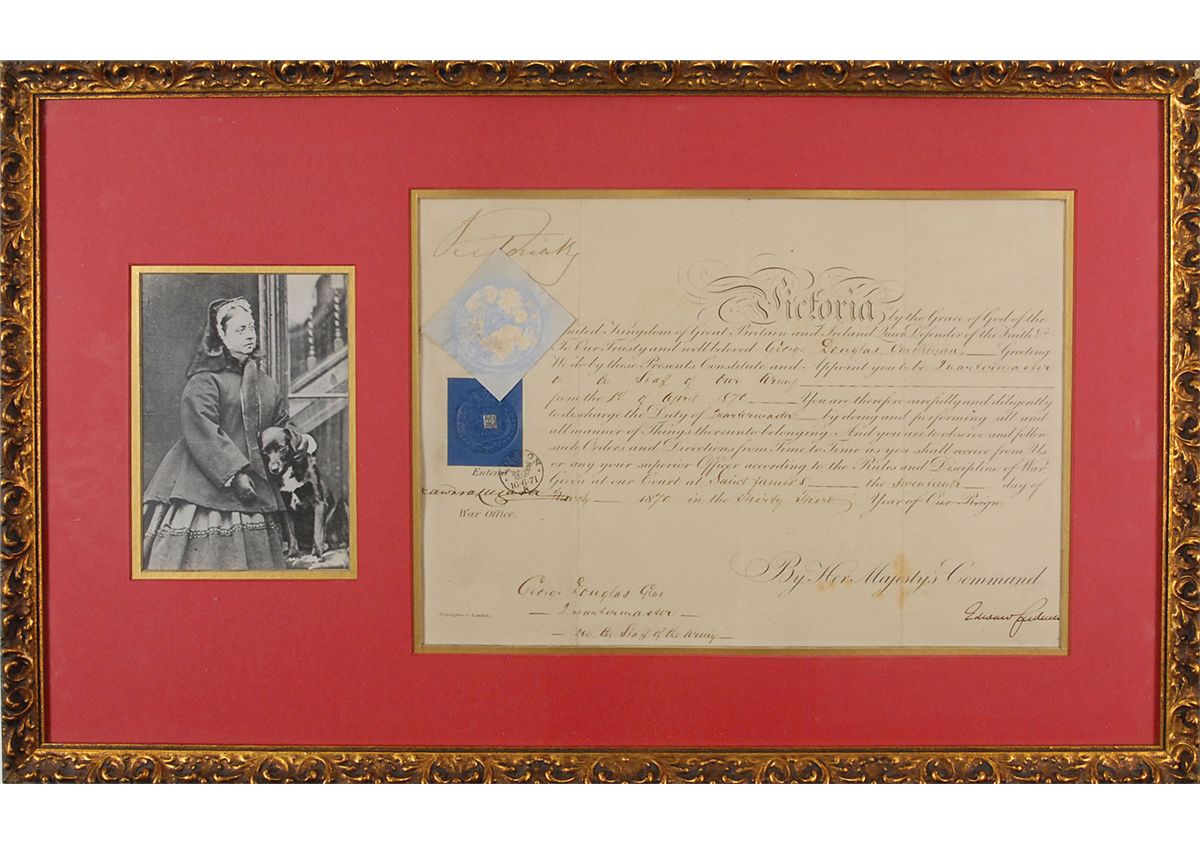 Victoria R
Victoria by the Grace of God of the
United Kingdom of Great Britain and Ireland Queen Defender of the Faith &c
To Our Trusty and well beloved George Douglas Greeting
We do by these Presents Constitute and Appoint you to be Quartermaster
on the Staff of Our Army
from the 1st of April 1870 You are therefore carefully and diligently
to discharge the Duty of Quartermaster by doing and performing all and
all manner of Things thereunto belonging. And you are to observe and follow
such Orders and Directions from Time to Time as you shall receive from Us
or any your superior Officer according to the Rules and Discipline of War.
Given at our Court at Saint James's the Seventeenth day of
March 1870 in the Thirty Third Year of Our Reign.
Entered
16·6·71
War Office.
By Her Majesty's Command.
George Douglas
Quartermaster
on the Staff of the Army